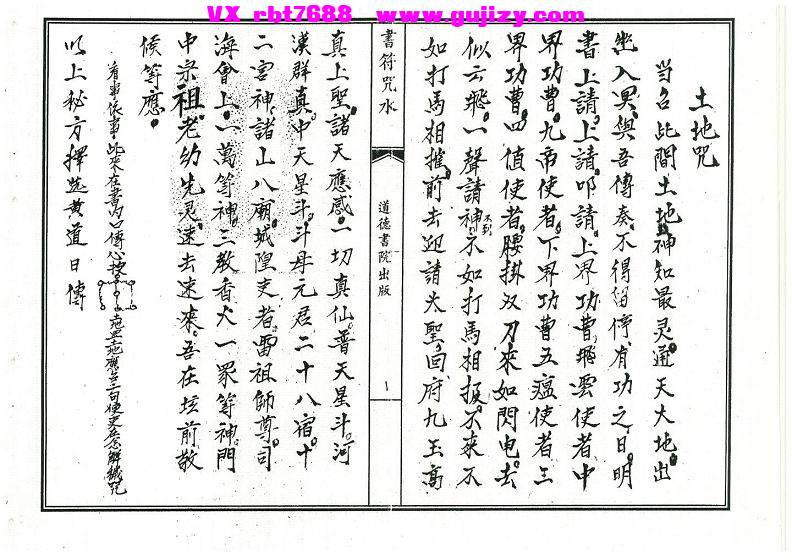 VX rbt7688    www.gujizy.com
土地咒
当召此間土地神知最灵通天大地出
幽入冥與吾傳奏不得留停有功之日明
書上請上請叩請上界功曹飛雲使者中
界功曹九帝使者下界功曹五瘟使者三
界功曹四值使者腰掛双刀來如閃电去
似云飛一聲請神不到不如打馬相报不來不
如打馬相摧前去迎請大聖回府九玉高
書符咒水
道德書院出版
1
真上聖諸天應感一切真仙普天星斗河
漢群真中天星斗斗母元君二十八宿十
二宮神諸山八廟城隍吏者雷祖師尊司
海會上一萬等神三教香火一眾等神門
中宗祖老幼先灵速去速來吾在坛前敬
候等應
看事依事此來在書內口傳心授
以上秘方擇选黄道日傳